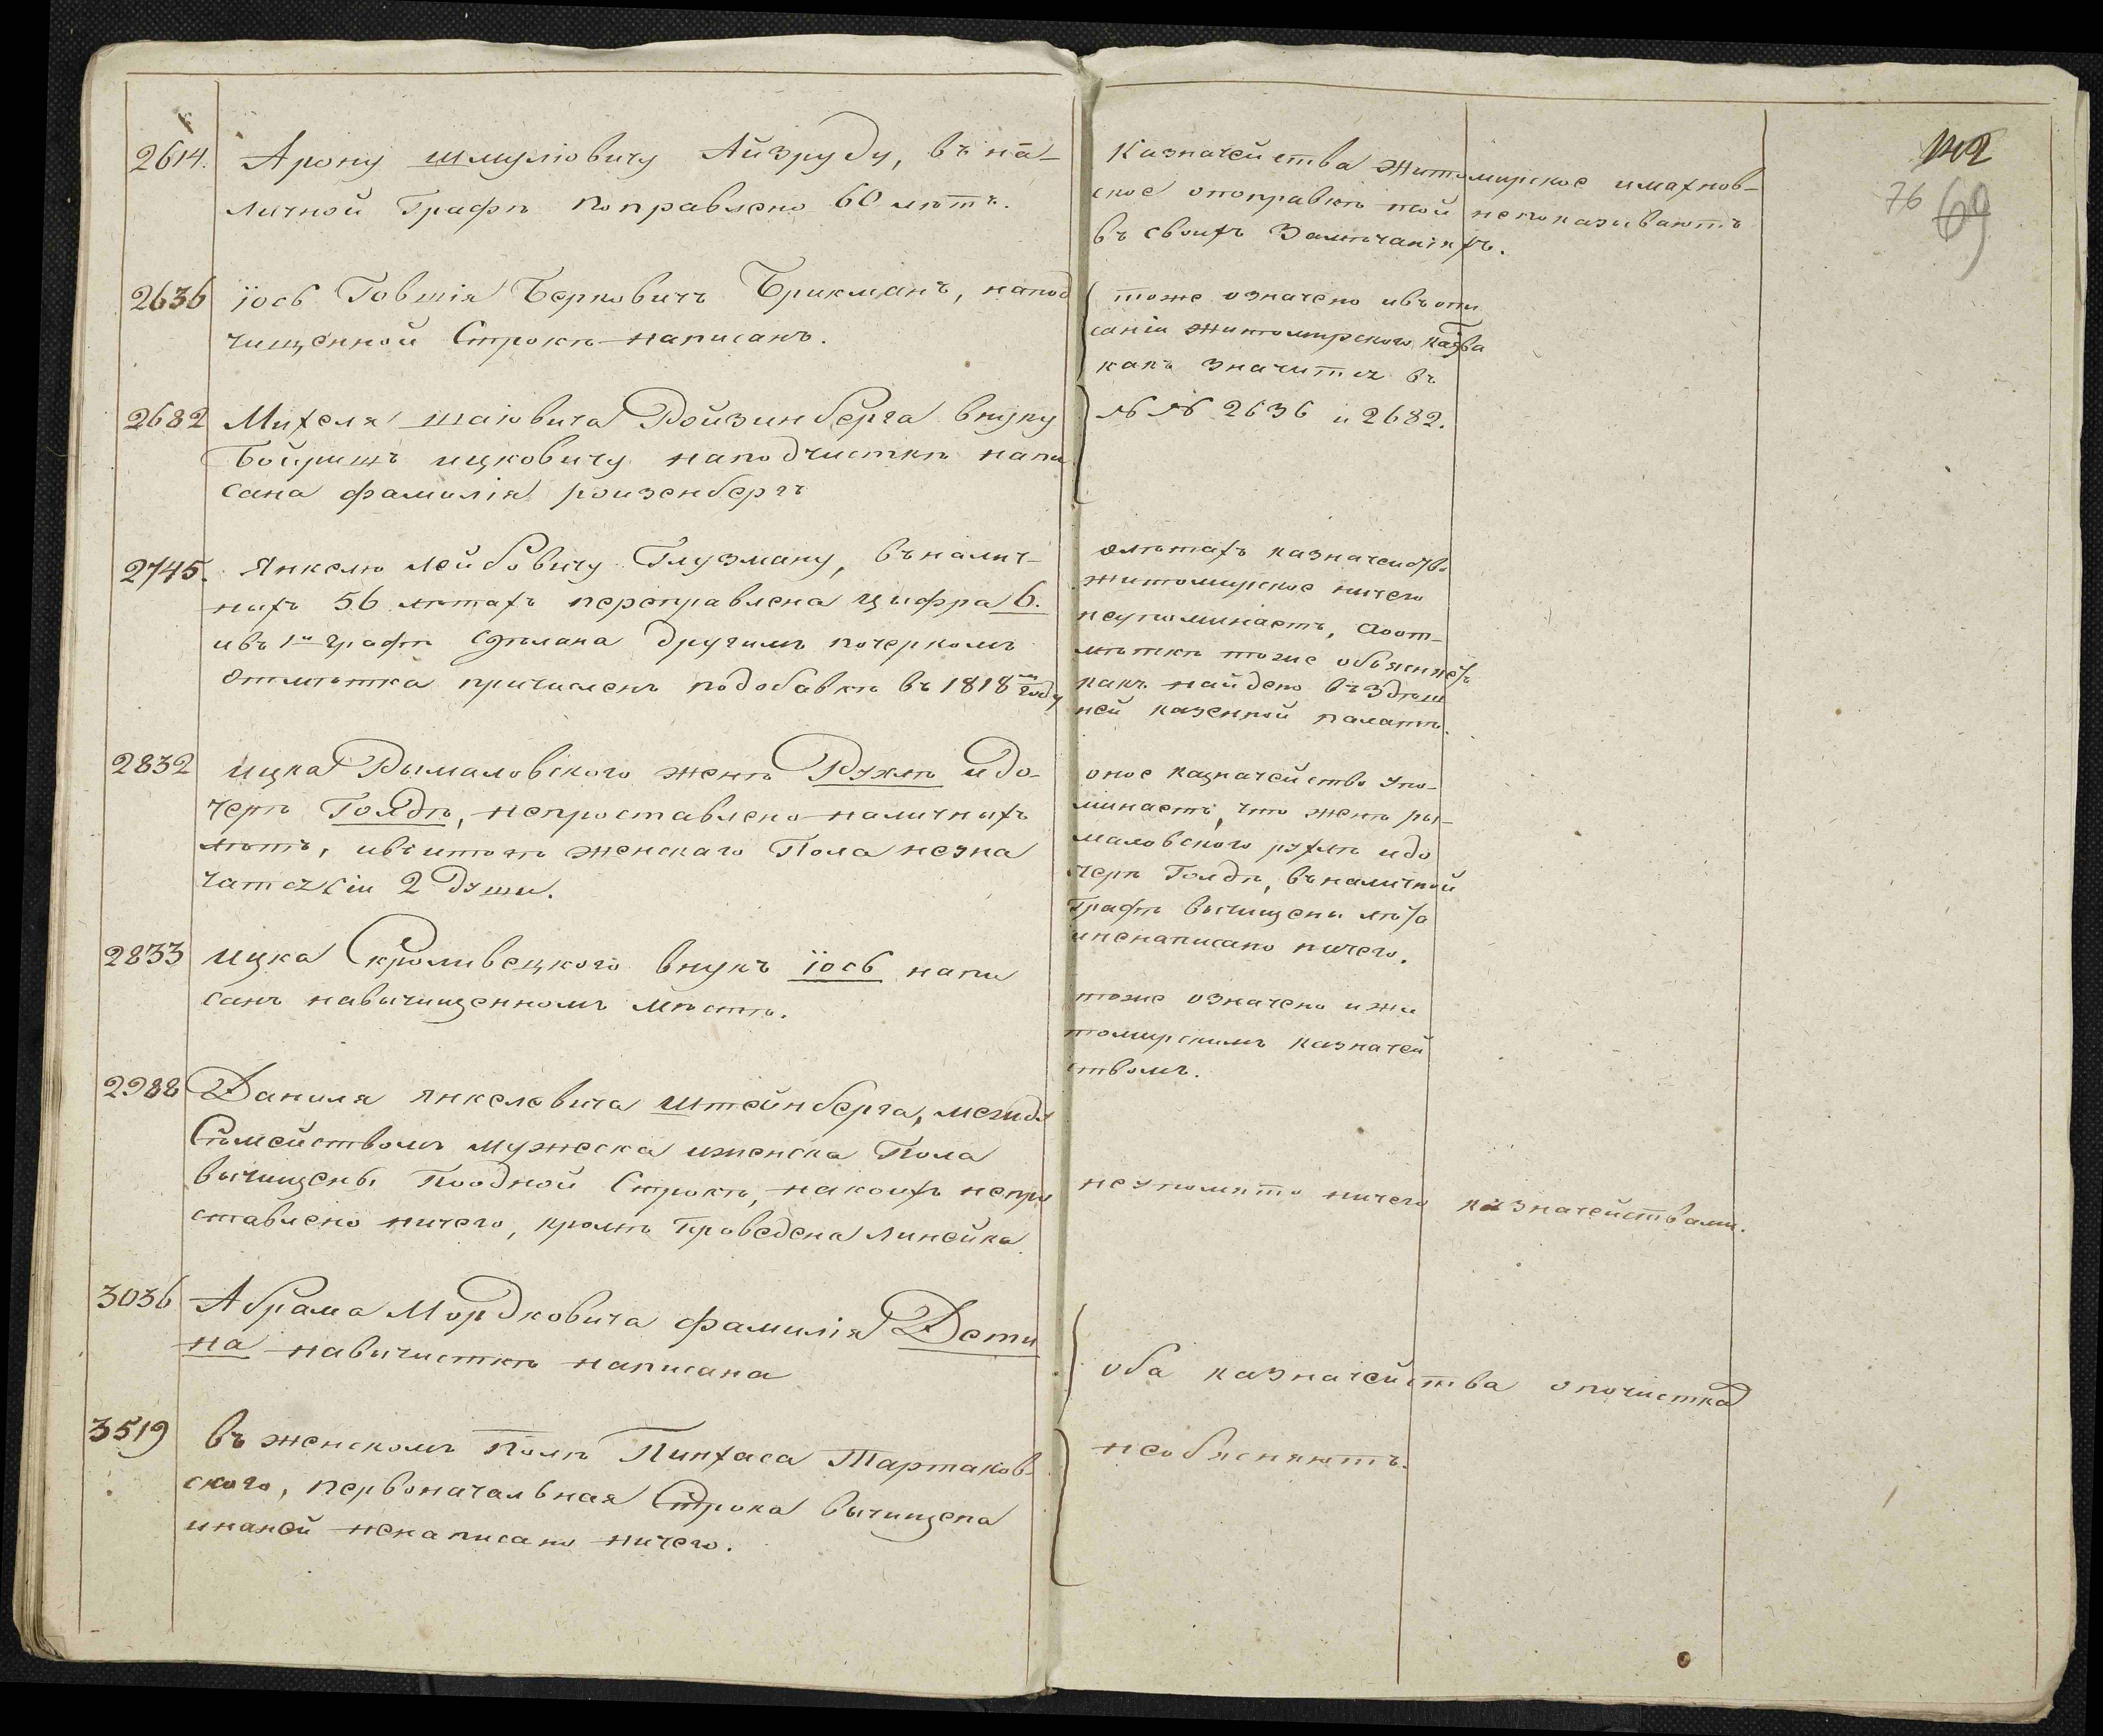 2614. Арону шмулiовичу Айзруду, въ на-
личной Графѣ поправлено 60 лѣтъ.
2636 iось Говшiя Берковичъ Брикманъ, напод
чищенной Строкѣ написанъ.
2682 Михеля шаiовича Ройзинберга внуку
Бойришъ ицковичу наподчисткѣ напи
сана фамилiя ройзенбергъ
2745. Янкелю лейбовичу Глузману, въналич-
ныхъ 56 лѣтахъ переправлена цыфра 6.
ивъ 1й графѣ сдѣлана другимъ почеркомъ
Отмѣтка причисленъ подобавкѣ въ 1818мъ году
2832 ицка Рымаловского женѣ Рухлѣ идо-
черѣ Голдѣ, непроставлено наличныхъ
лѣтъ, ивъитогѣ женскаго Пола незна
чатся сiи 2 Души.
2833 ицка Кроливецкого внукъ iось напи
санъ навычищенномъ мѣстѣ.
2988 Даниля янкелевича штейнберга, между
Сѣмействомъ мужеска иженска Пола
вычищены Поодной Строкѣ, накоихъ непро
ставлено ничего, кромѣ проведена линейка
3036 Абрама Мордковича фамилiя Дети
на навычисткѣ написана
3519 въ женскомъ Полѣ Пинхаса Тартаков-
ского, первоначальная Строка вычищена
инаней ненаписано ничего.
142
76 69
Казначейства житомирское имахнов-
ское опоправкѣ той непоказываютъ
въ своихъ Замѣчанiяхъ.
тоже означено ивъопи
санiи житомирского казва
какъ значится въ
№ № 2636 и 2682.
олѣтахъ казначейство
житомирское ничего
неупоминаетъ, аоот-
мѣткѣ тоже объясняетъ
какъ найдено въздѣш
ней казенной палатѣ.
оное казначейство упо-
минаетъ, что женѣ ры-
маловского рухлѣ идо
черѣ Голдѣ, въналичной
Графѣ вычищены лѣта
иненаписано ничего.
тоже означено ижи
томирскимъ казначей
ствомъ.
неупомянуто ничего казначействами.
оба казначейства опочистка
необясняютъ.